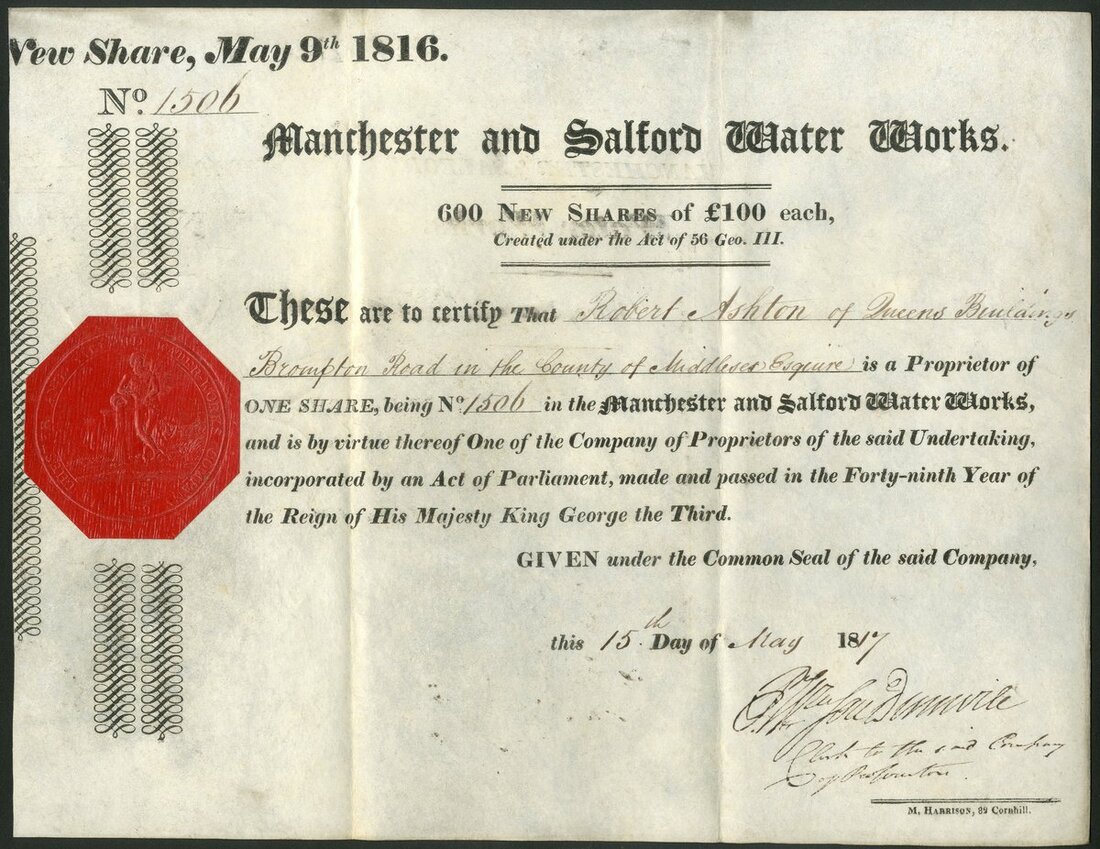 New Share, May 9th 1816.
No. 1506
Manchester and Salford Water Works.
600 NEW SHARES of £100 each,
Created under the Act of 56 Geo. III.
These are to certify That Robert Ashton of Queens Buildings
Brompton Road in the County of Middlesex Esquire is a Proprietor of
ONE SHARE, being No. 1506 in the Manchester and Salford Water Works,
and is by virtue thereof One of the Company of Proprietors of the said Undertaking,
incorporated by an Act of Parliament, made and passed in the Forty-ninth Year of
the Reign of His Majesty King George the Third.
GIVEN under the Common Seal of the said Company,
this 15th Day of May 1817
Clerk to the said Company
M. HARRISON, 82 Cornhill.